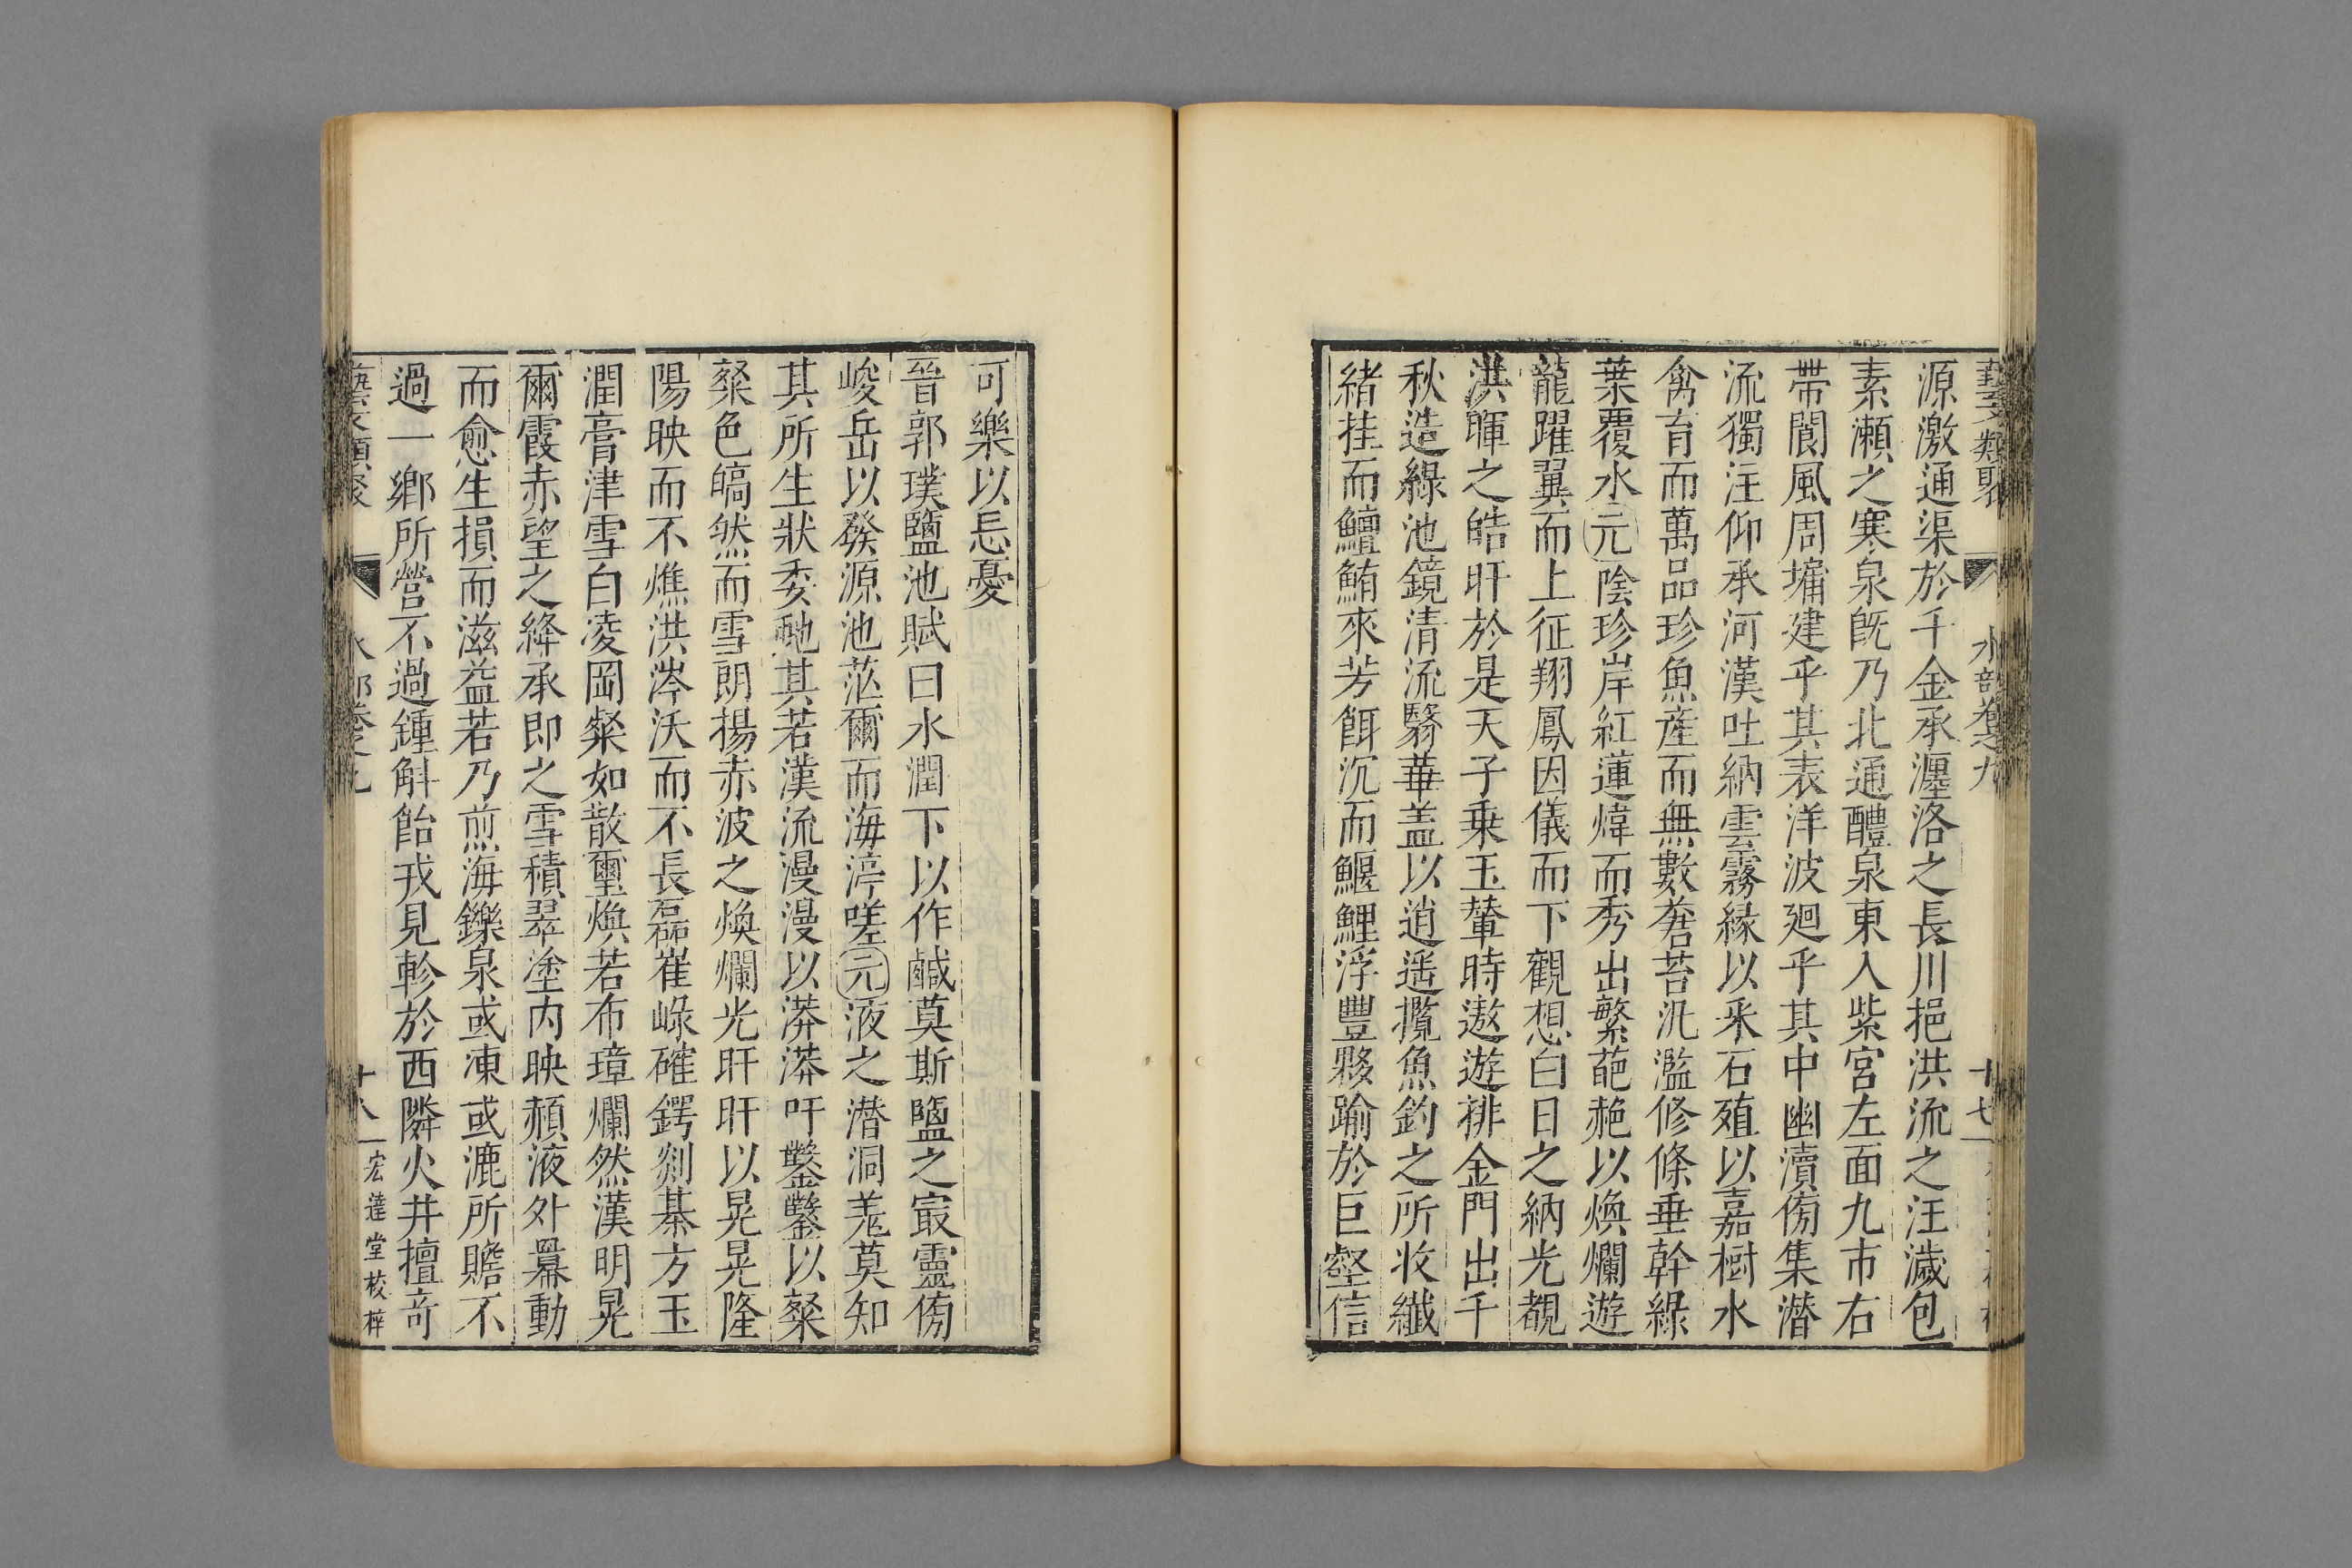 水部卷之九
十七
源激通渠於千金承瀍洛之長川挹洪流之汪濊包
素瀨之寒泉旣乃北通醴泉東入紫宮左面九市右
帶閬風周墉建乎其表洋波迴乎其中幽瀆傍集潛
流獨注仰承河漢吐納雲霧緣以釆石殖以嘉樹水
禽育而萬品珍魚産而無數蒼苔汎濫修條垂幹綠
葉覆水元陰珍岸紅蓮煒而秀出繁葩赩以煥爛遊
龍躍翼而上征翔鳳因儀而下觀想白日之納光覩
洪暉之皓旰於是天子乗玉輦時遨遊排金門出千
秋造綠池鏡清流翳華盖以逍遥攬魚釣之所收纖
緒挂而鱣鮪來芳餌沉而鰋鯉浮豐夥踰於巨壑信
可樂以忘憂
晉郭璞鹽池賦曰水潤下以作鹹莫斯鹽之㝡靈傍
峻岳以發源池茫爾而海渟嗟元液之潛洞羌莫知
其所生狀委虵其若漢流漫漫以漭漭吁鑿鑿以粲
粲色皜然而雪朗揚赤波之煥爛光旰旰以晃晃隆
陽映而不燋洪涔沃而不長磊崔崒碓鍔剡棊方玉
潤膏津雪白凌岡粲如散璽煥若布璋爛然漢明晃
爾霞赤望之絳承即之雪積翠塗内映赬液外羃動
而愈生損而滋益若乃煎海鑠泉或凍或漉所贍不
過一鄉所營不過鍾斛飴戎見軫於西隣火井擅奇
十八
宏達堂校梓